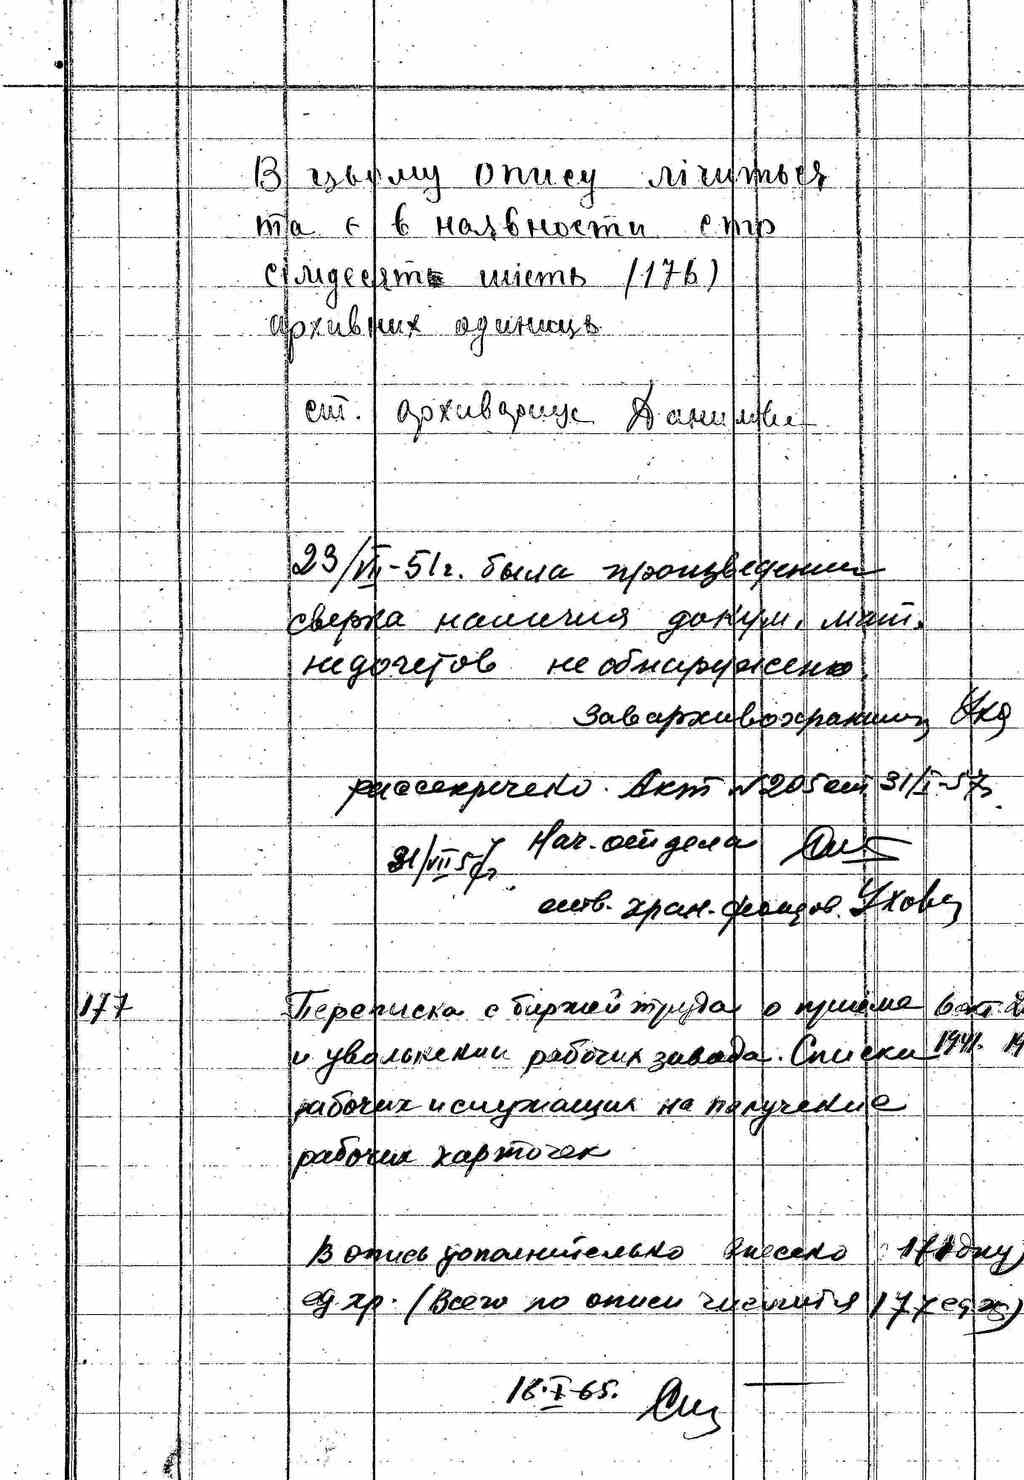 В цьому опису лічиться
та є в наявности сто
сімдесять шість (176)
архивних одиниць
ст. архивариус Данилов
23/VII-51г. была произведенна
сверка наличия докум. мат.
недочетов не обнаружено.
Зав архивохранилищ
рассекречено. Акт №205 от 31/I-57г.
31/VII 57г. Нач. отдела
отв. хран. фондов.
177 Переписка с биржей труда о приеме 6 окт.
и увольнении рабочих завода. Списки 1941.
рабочих и служащих на получение
рабочих карточек
В опись дополнительно внесено 1 (одну)
ед. хр. (Всего по описи числится 177 ед. хр.)
16.I-65.